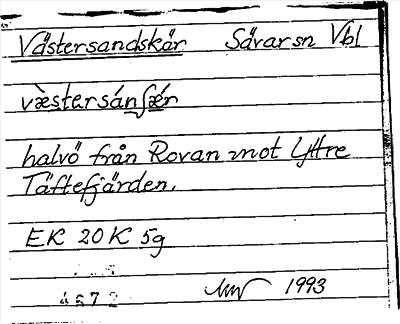 Västersandskär Sävarsn Vbl
væ̀stersánʃæ̀r
halvö från Rovan mot Yttre
Täftefjärden.
EK 20K 5g
1993
4672